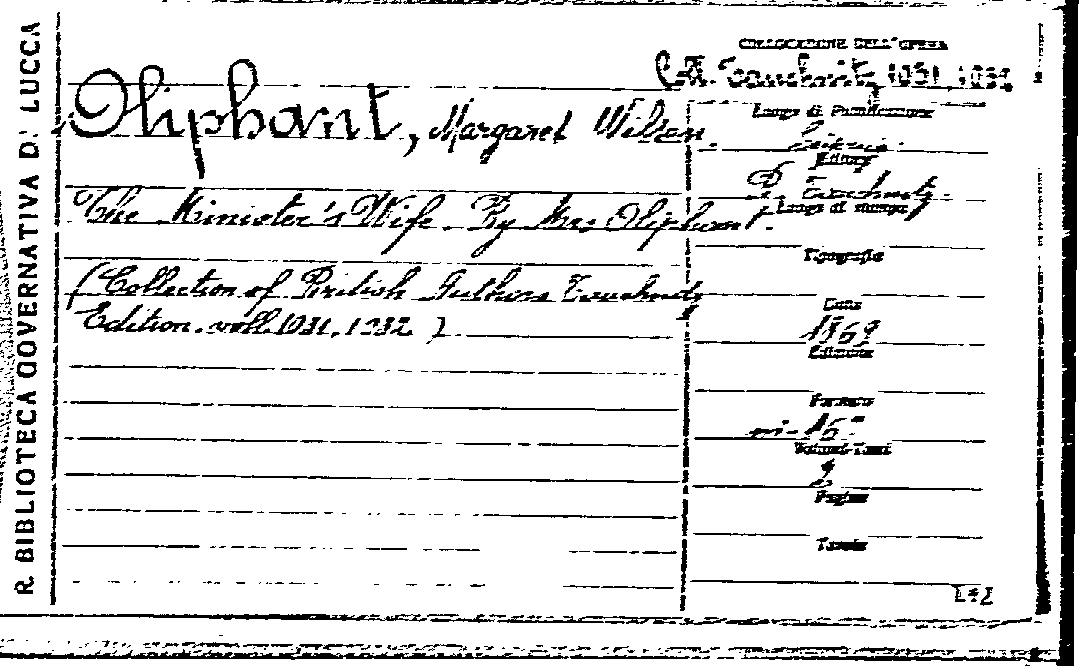 R. BIBLIOTECA GOVERNATIVA DI LUCCA
COLLOCAZIONE DELL'OPERA
Tauchnitz 1031, 1032
Oliphant, Margaret Wilson.
The Minister's Wife. By Mrs Oliphant.
(Collection of British Authors Tauchnitz
Edition. voll. 1031, 1032)
Luogo di Pubblicazione
Editore
Tauchnitz.
Luogo di stampa
Tipografia
Data
1869
Edizione
Formato
in-16°
Volumi-Tomi
2
Pagine
Tavole